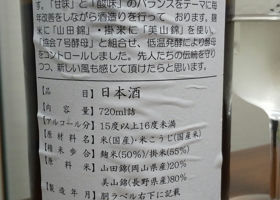 す。「甘味」と「酸味」のバランスをテーマに毎
年改善をしながら酒造りを行って おります。麹
米に「山田錦」・掛米に「美山錦」を使い、
「協会7号酵母」と組合せ、低温発酵により酵母
をコントロールしました。先人たちの伝統を守り
つつ、新しい風も感じて頂けたらと思います。
【品 目】日本酒
【内 容 量】720ml詰
【アルコール分】15度以上16度未満
【原 材 料 名】米(国産)・米こうじ(国産米)
【精 米 歩 合】麹米(50%)/掛米(55%)
【原 料 米】山田錦(岡山県産)20%
美山錦(長野県産)80%
【製 造 年 月】胴ラベル右下に記載